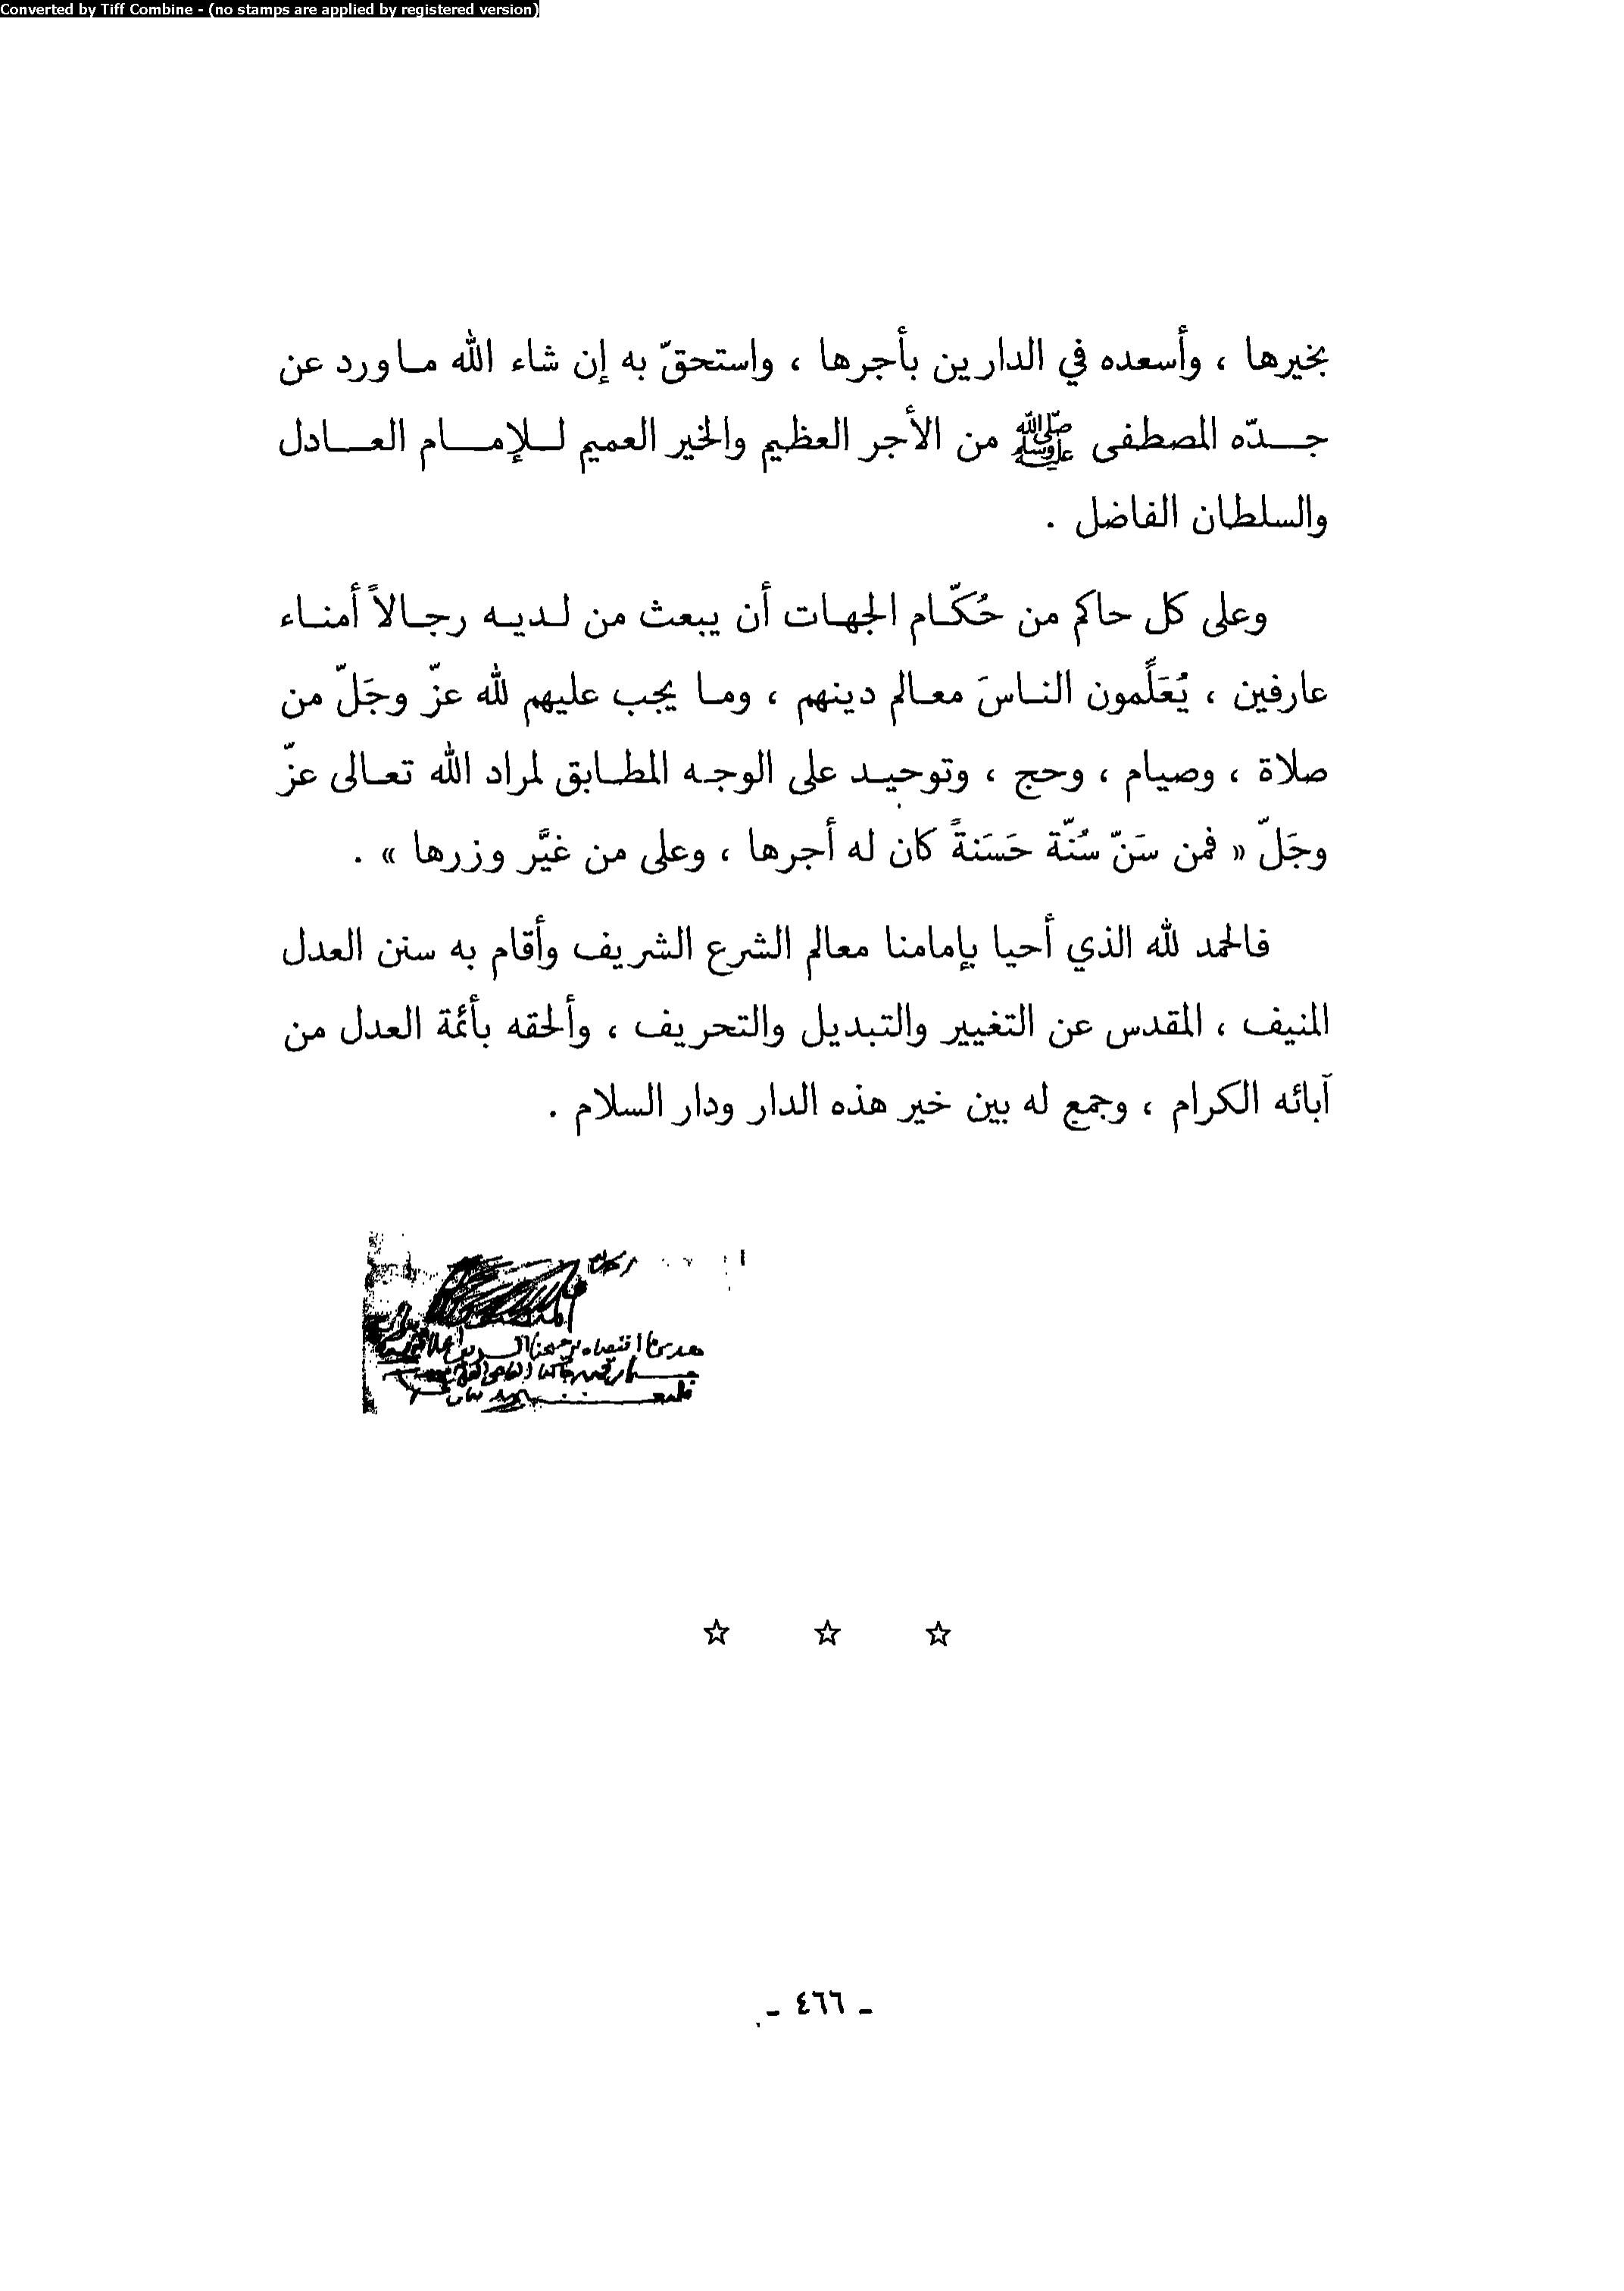 Converted by Tiff Combine - (no stamps are applied by registered version)
بخيرها ، وأسعده في الدارين بأجرها ، واستحقّ به إن شاء الله ماورد عن
جدّه المصطفى ﷺ من الأجر العظيم والخير العميم للإمام العادل
والسلطان الفاضل .
وعلى كل حاكم من حُكّام الجهات أن يبعث من لديه رجالاً أمناء
عارفين ، يُعَلِّمون الناسَ معالم دينهم ، وما يجب عليهم لله عزّ وجَلّ من
صلاة ، وصيام ، وحج ، وتوحيد على الوجه المطابق لمراد الله تعالى عزّ
وجَلّ « فمن سَنّ سُنّة حَسَنةً كان له أجرها ، وعلى من غيَّر وزرها » .
فالحمد لله الذي أحيا بإمامنا معالم الشرع الشريف وأقام به سنن العدل
المنيف ، المقدس عن التغيير والتبديل والتحريف ، وألحقه بأئمة العدل من
آبائه الكرام ، وجمع له بين خير هذه الدار ودار السلام .
☆ ☆ ☆
- ٤٦٦ -